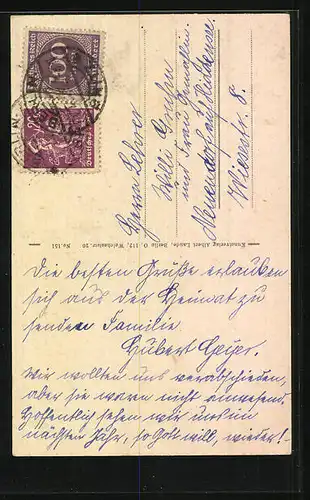 Deutsches Reich
100
Herrn Lehrer
Willi
und Frau Gemahlin
Neuendorf auf Hiddensee
Wiesenstr. 8.
Kunstverlag Albert Lande, Berlin O. 112, Weichselstr. 20 No. 151
Die besten Grüße erlauben
sich aus der Heimat zu
senden Familie
Hubert Geyer.
Wir wollten uns verabschieden,
aber sie waren nicht anwesend.
Hoffentlich sehen wir uns im
nächsten Jahr, so Gott will, wieder!-